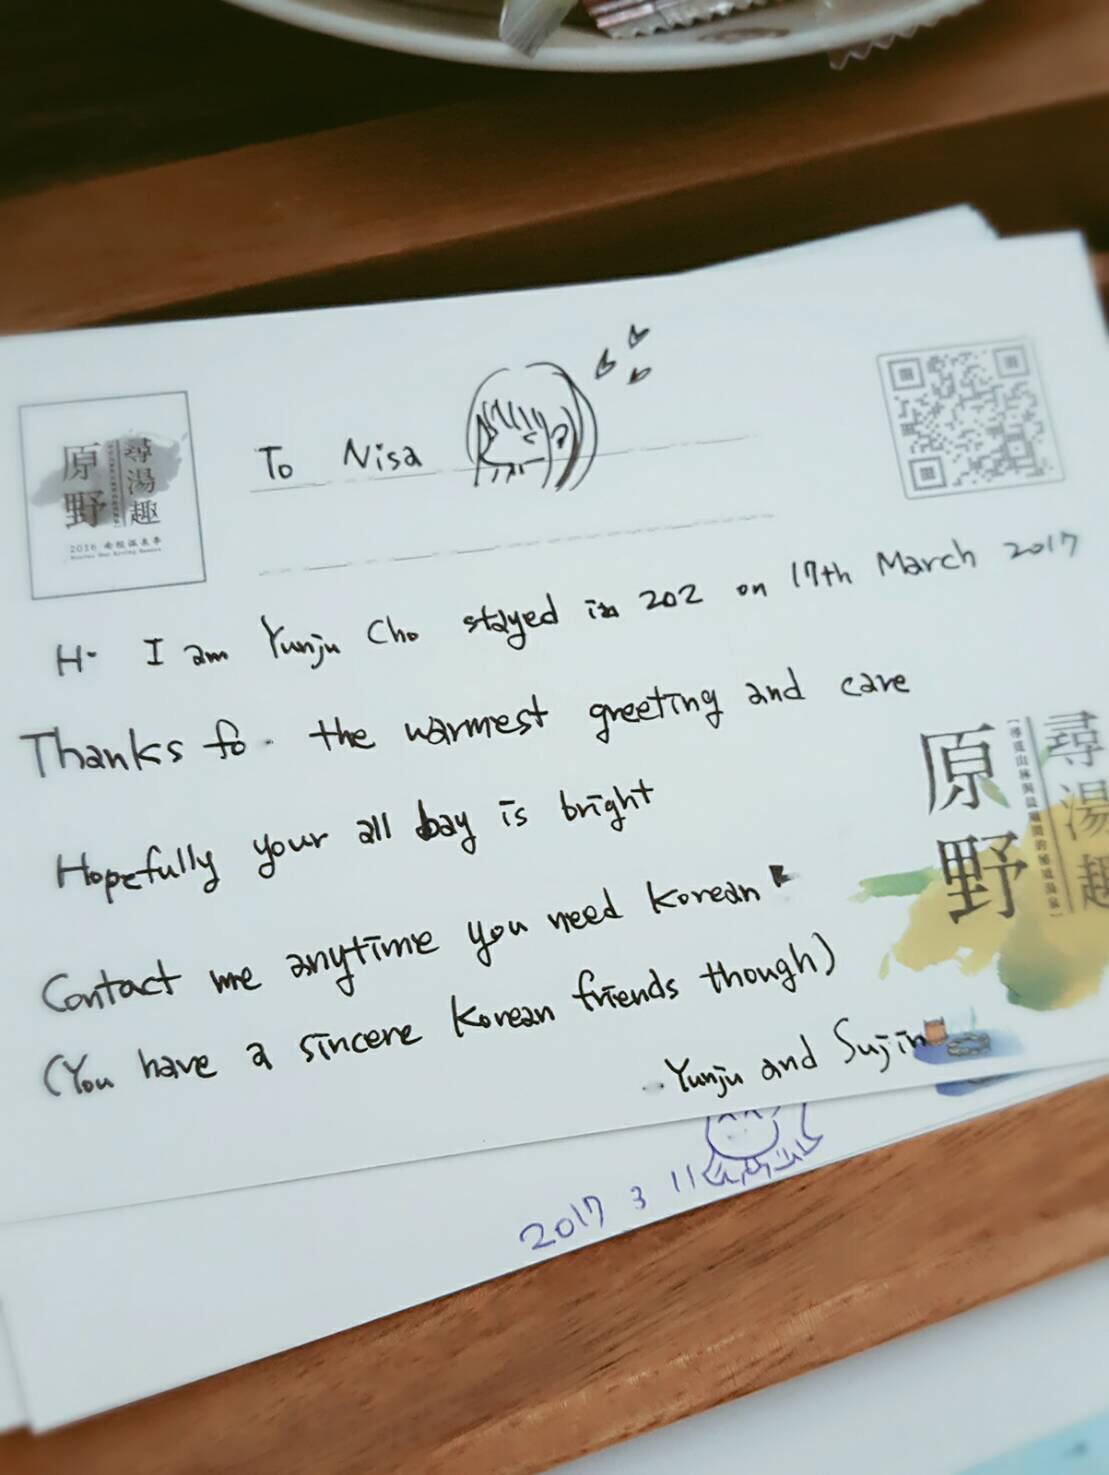 原野
尋湯趣
2016
To Nisa
Hi I am Yunju Cho stayed in 202 on 17th March 2017
Thanks fo. the warmest greeting and care
Hopefully your all day is bright
Contact me anytime you need Korean
(You have a sincere Korean friends though)
Yunju and Sujin
原野
尋湯趣
2017 3 11